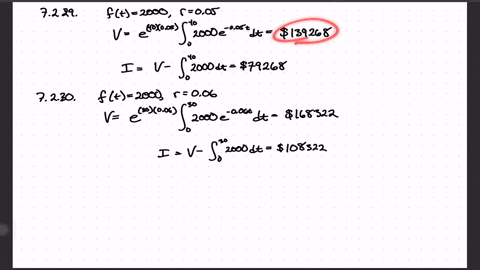 7.2.29. f(t)=2000, r=0.05
V= e^{(40)(0.05)} ∫_0^{40} 2000e^{-0.05t} dt = $139268
I = V- ∫_0^{40} 2000dt = $79268
7.2.30. f(t)=2000, r=0.06
V= e^{(30)(0.06)} ∫_0^{30} 2000e^{-0.06t} dt = $168322
I = V- ∫_0^{30} 2000dt = $108322